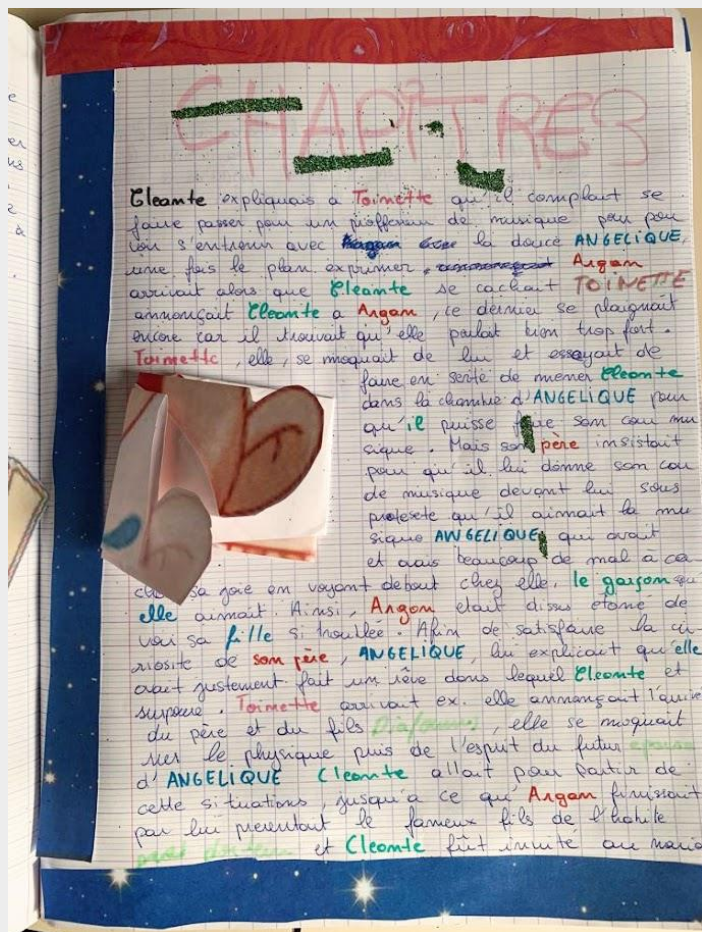 CHAPITRE 3
Cleante expliquais a Toinette qu'il comptait se
faire passer pour un proffeseur de musique pour pou
voir s'entretenir avec la douce ANGELIQUE,
une fois le plan exprimer, Argan
arrivait alors que Cleante se cachait TOINETTE
annonçait Cleante a Argan, ce dernier se plaignait
encore car il trouvait qu'elle parlait bien trop fort.
Toinette, elle, se moquait de lui et essayait de
faire en sorte de mener Cleante
dans la chambre d'ANGELIQUE pour
qu'il puisse faire son cour mu
sique. Mais son père insistait
pour qu'il lui donne son cou
de musique devant lui sous
pretexte qu'il aimait la mu
sique ANGELIQUE, qui avait
et avais beaucoup de mal a ca-
cher sa joie en voyant debout chez elle, le garçon qu
elle aimait. Ainsi, Argan etait disus etoné de
voir sa fille si troublée. Afin de satisfaire la cu-
riosite de son père, ANGELIQUE, lui explicait qu'elle
avait justement fait un rêve dans lequel Cleante et
surprise. Toinette arrivait ex. elle annonçait l'arrivé
du père et du fils Diafoirus, elle se moquait
sur le physique puis de l'esprit du futur epoux
d'ANGELIQUE Cleante allait pour partir de
cette situations, jusqu'a ce qu'Argan finissait
par lui presentait le fameux fils de l'habile
et Cleante fût invite au maria